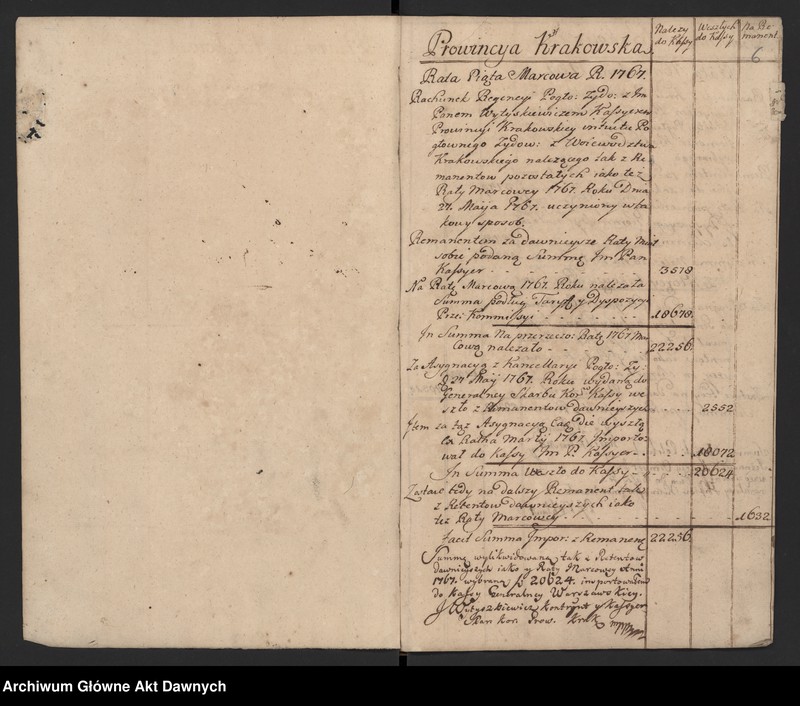 Prowincya Krakowska
Należy do Kassy
Weszłych do Kassy
Na Remanent
6
Rata Piąta Marcowa R. 1767.
Rachunek Regencyi Pogło: Żydo: z Im
Panem Wytyskiewiczem Kassyerem
Prowincyi Krakowskiey intuitu Po
głownego Zydow: z Woiewodztwa
Krakowskiego nalezącego tak z Re
manentow pozostałych iako też
Raty Marcowey 1767. Roku Dnia
27. Maija 1767. uczyniony w ta
kowy sposob.
Remanentem za dawnieysze Raty miał
sobie podaną Summę Im Pan
Kassyer - - - 3578
Na Ratę Marcową 1767. Roku należała
Summa podług Taryff y Dyspozycyi
Prze: Kommissyi - - - 18678.
In Summa Na przerzeczo: Ratę 1767 Mar
cową należało - - - 22256.
Za Asygnacyą z Kancellaryi Pogło: Ży:
D. 27 Maij 1767. Roku wydaną do
Generalney Skarbu Kor: Kassy we
szło z Remanentow dawnieyszych - - - 2552
Item za tąż Asygnacyą ead: die wyszłą
ca Ratha Martij 1767. Importo:
wał do Kassy Im P. Kassyer - - - 18072
In Summa Weszło do Kassy - - - 20624.
Zostaie tedy na dalszy Remanent tak
z Retentow dawnieyszych iako
też Raty Marcowey - - - 1632
Facit Summa Impor: z Remanen: 22256.
Summę wylikwidowaną tak z Retentow
dawnieyszych iako y Raty Marcowey Anni
1767. wybraną fl 20624. importowałem
do Kassy Generalney Warszawskiey.
J Wityszkiewicz kontrahent y Kassyer
Skar. Kor. Prow. Krak mpp
Archiwum Główne Akt Dawnych